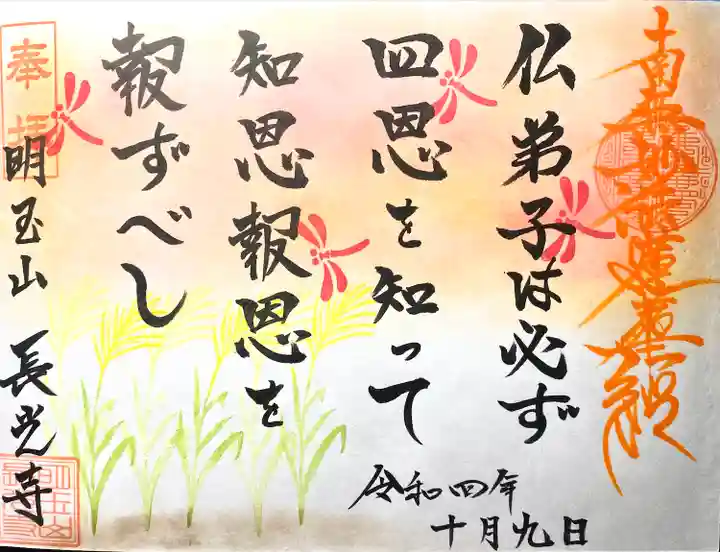 南無妙法蓮華経
仏弟子は必ず
四恩を知って
知恩報恩を
報ずべし
令和四年
十月九日
奉拝
明玉山 長光寺